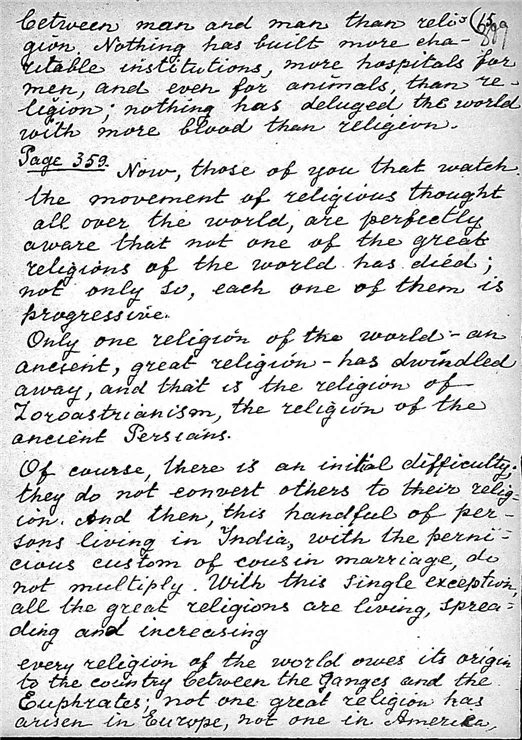 between man and man than reli-
gion. Nothing has built more cha-
ritable institutions, more hospitals for
men, and even for animals, than re-
ligion; nothing has deluged the world
with more blood than religion.
Page 359. Now, those of you that watch
the movement of religious thought
all over the world, are perfectly
aware that not one of the great
religions of the world has died;
not only so, each one of them is
progressive.
Only one religion of the world - an
ancient, great religion - has dwindled
away, and that is the religion of
Zoroastrianism, the religion of the
ancient Persians.
Of course, there is an initial difficulty;
they do not convert others to their relig-
ion. And then, this handful of per-
sons living in India, with the perni-
cious custom of cousin marriage, do
not multiply. With this single exception,
all the great religions are living, sprea-
ding and increasing
every religion of the world owes its origin
to the country between the Ganges and the
Euphrates; not one great religion has
arisen in Europe, not one in America,